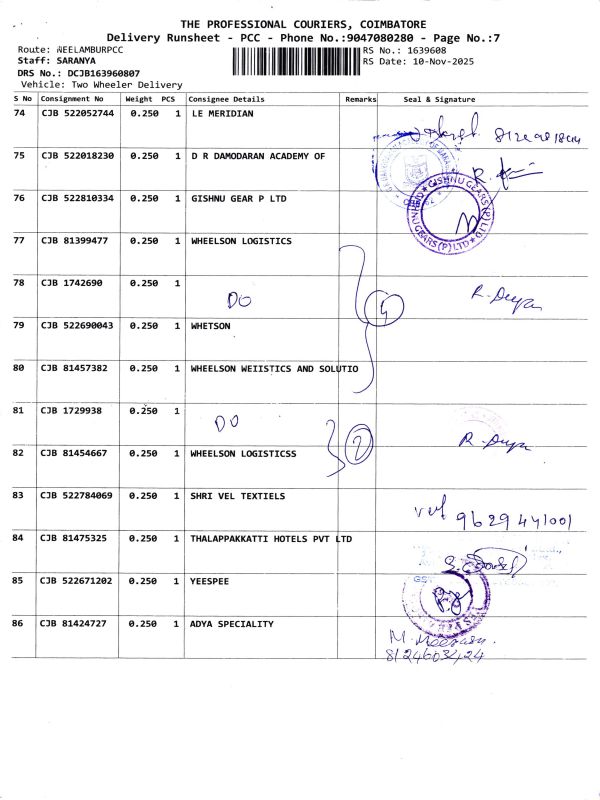 THE PROFESSIONAL COURIERS, COIMBATORE
Delivery Runsheet - PCC - Phone No.:9047080280 - Page No.:7
Route: NEELAMBURPCC
RS No.: 1639608
Staff: SARANYA
RS Date: 10-Nov-2025
DRS No.: DCJB163960807
Vehicle: Two Wheeler Delivery
S No Consignment No Weight PCS Consignee Details Remarks Seal & Signature
74 CJB 522052744 0.250 1 LE MERIDIAN
75 CJB 522018230 0.250 1 D R DAMODARAN ACADEMY OF
R.
76 CJB 522810334 0.250 1 GISHNU GEAR P LTD
GISHNU GEARS (P) LTD
77 CJB 81399477 0.250 1 WHEELSON LOGISTICS
78 CJB 1742690 0.250 1
DO
4
R. Divya
79 CJB 522690043 0.250 1 WHETSON
80 CJB 81457382 0.250 1 WHEELSON WEIISTICS AND SOLUTIO
81 CJB 1729938 0.250 1
DO
2
R. Divya
82 CJB 81454667 0.250 1 WHEELSON LOGISTICSS
83 CJB 522784069 0.250 1 SHRI VEL TEXTIELS
vel 9629441001
84 CJB 81475325 0.250 1 THALAPPAKKATTI HOTELS PVT LTD
85 CJB 522671202 0.250 1 YEESPEE
GST
86 CJB 81424727 0.250 1 ADYA SPECIALITY
M.
8124603424